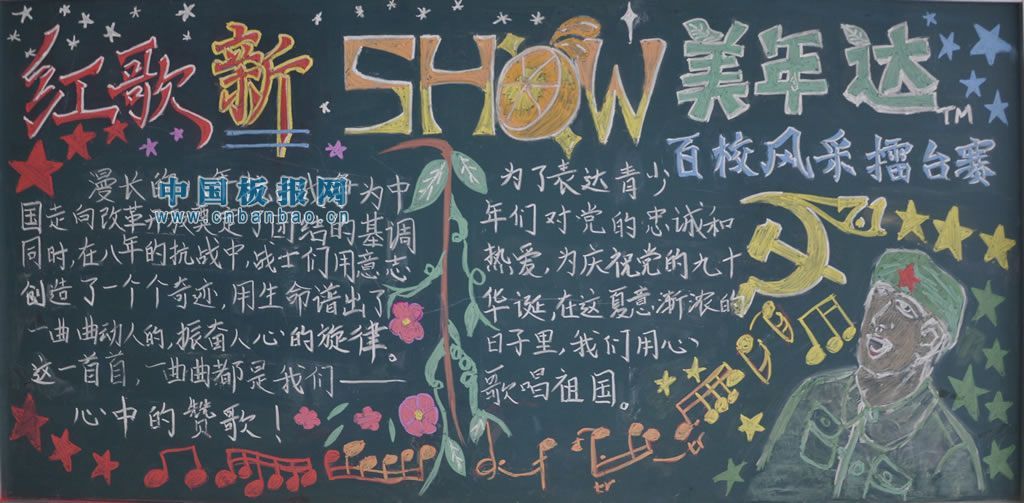 红歌新SHOW美年达TM
百校风采擂台赛
漫长的
为中
国走向改革开放奠定了团结的基调
同时,在八年的抗战中,战士们用意志
创造了一个个奇迹,用生命谱出了
一曲曲动人的,振奋人心的旋律。
这一首首,一曲曲都是我们——
心中的赞歌!
中国板报网
www.cnbanbao.cn
为了表达青少
年们对党的忠诚和
热爱,为庆祝党的九十
华诞,在这夏意渐浓的
日子里,我们用心
歌唱祖国。
7.1
tr
tr